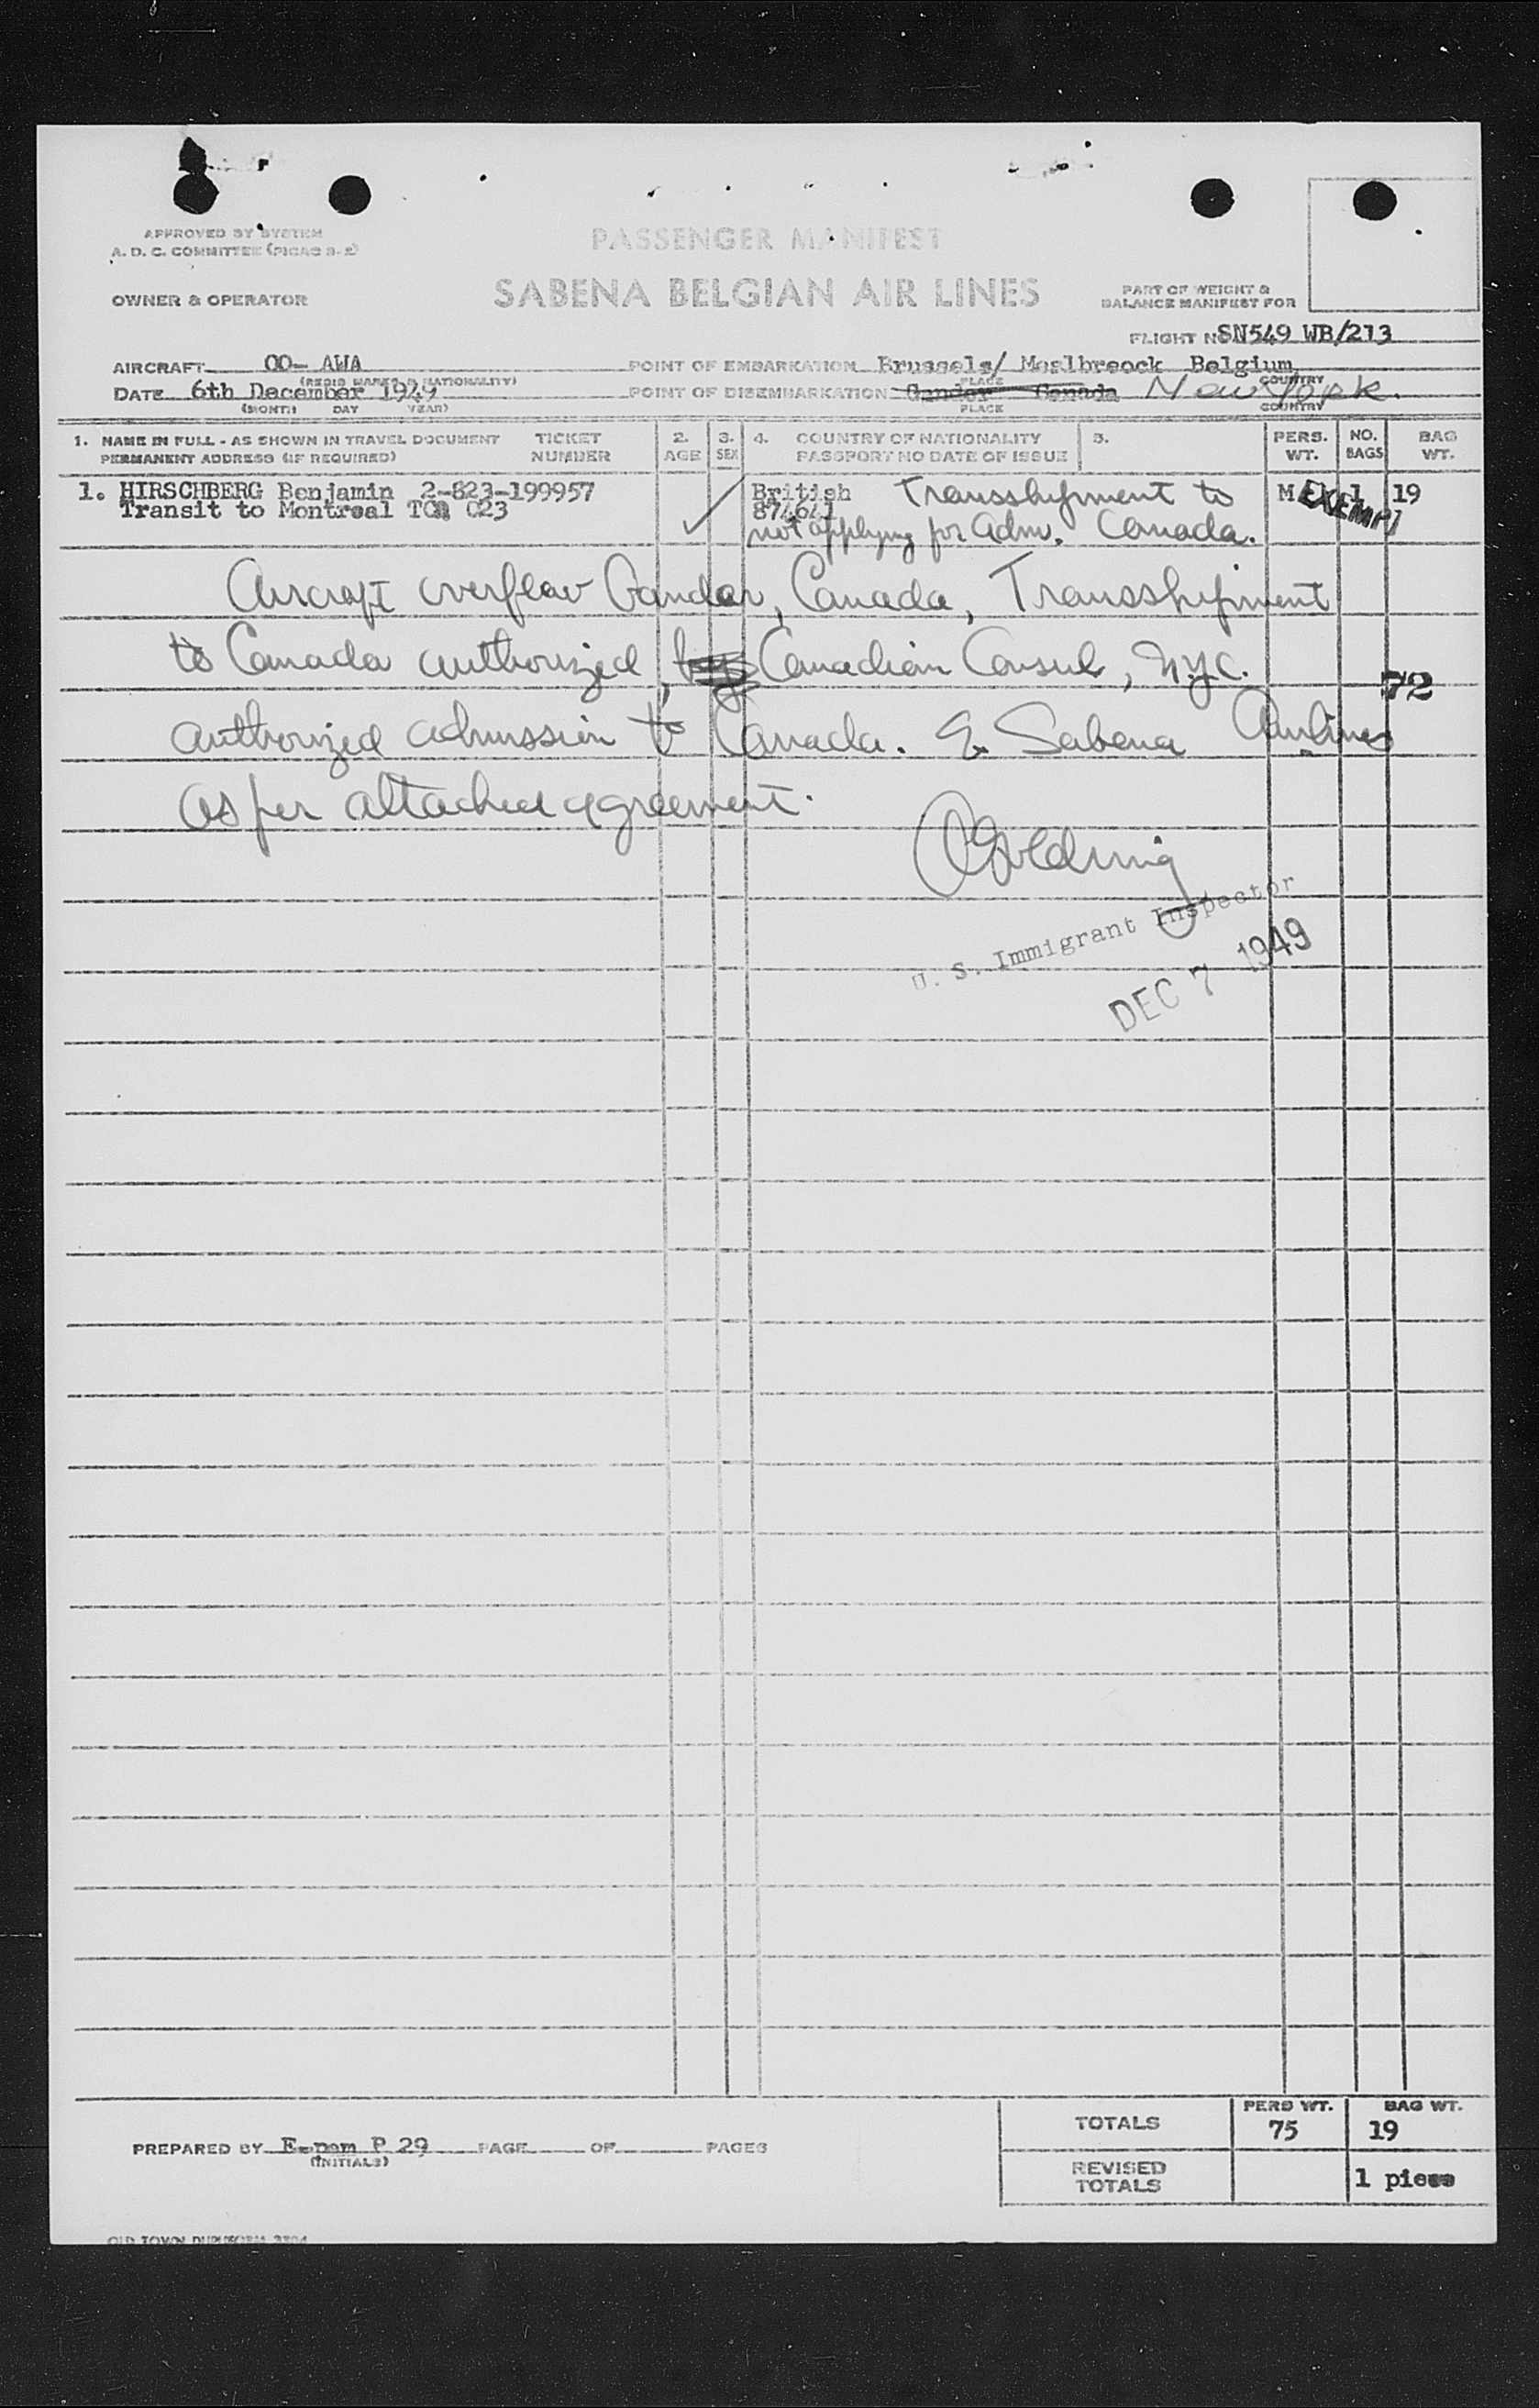 APPROVED BY SYSTEM
A. D. C. COMMITTEE (PICAO 9-2)
PASSENGER MANIFEST
OWNER & OPERATOR
SABENA BELGIAN AIR LINES
PART OF WEIGHT &
BALANCE MANIFEST FOR
FLIGHT NO SN549 WB/213
AIRCRAFT OO- AWA
POINT OF EMBARKATION Brussels/ Meslbreock Belgium
(REGIS MARKS & NATIONALITY)
PLACE COUNTRY
DATE 6th December 1949
POINT OF DISEMBARKATION Gander Canada New York.
(MONTH DAY YEAR)
PLACE COUNTRY
1. NAME IN FULL - AS SHOWN IN TRAVEL DOCUMENT
PERMANENT ADDRESS (IF REQUIRED)
TICKET
NUMBER
2.
AGE
3.
SEX
4. COUNTRY OF NATIONALITY
PASSPORT NO DATE OF ISSUE
5.
PERS.
WT.
NO.
BAGS
BAG
WT.
1. HIRSCHBERG Benjamin 2-823-199957 British Transshipment to M EXEMPT 1 19
Transit to Montreal 023 874641
not applying for adm. Canada.
Aircraft overflew Gander, Canada, Transshipment
to Canada authorized, by Canadian Consul, N.Y.C.
72
authorized admission to Canada. & Sabena Airlines
as per attached agreement.
U. S. Immigrant Inspector
DEC 7 1949
TOTALS
PERS WT.
75
BAG WT.
19
PREPARED BY P 29 PAGE OF PAGES
(INITIALS)
REVISED
TOTALS
1 piece